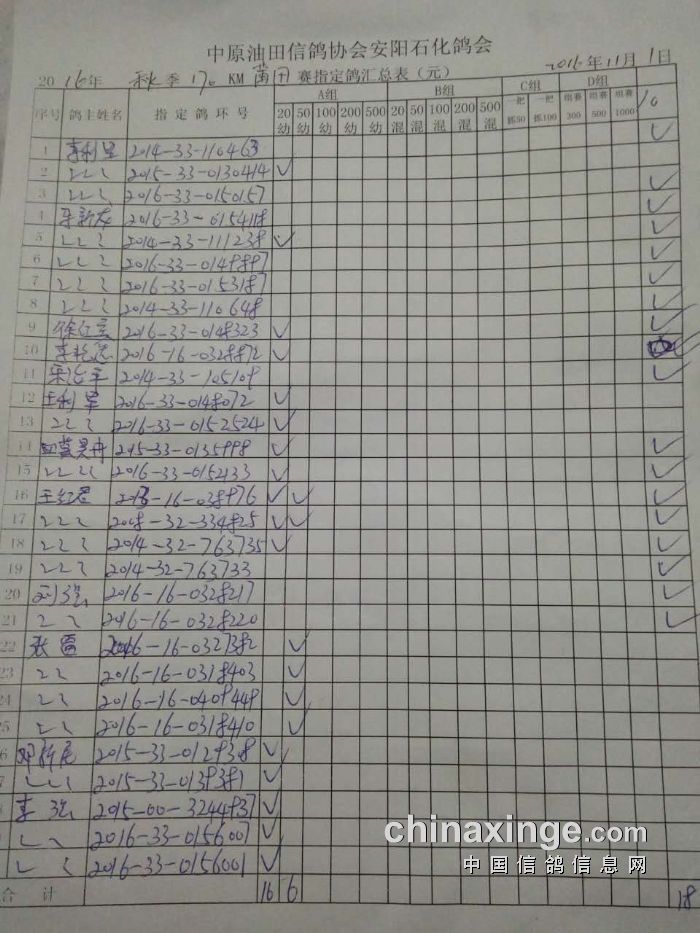 中原油田信鸽协会安阳石化鸽会
2016年 秋季 170 KM 莆田 赛指定鸽汇总表（元） 2016年11月1日
序号 鸽主姓名 指定鸽环号 A组 B组 C组 D组 10
20幼 50幼 100幼 200幼 500幼 20混 50混 100混 200混 500混 一把抓50 一把抓100 组赛300 组赛500 组赛1000
1 2014-33-110463 ✓
2 〃 2015-33-0130414 ✓
3 〃 2016-33-0150157 ✓
4 2016-33-0154118 ✓
5 〃 2014-33-111238 ✓ ✓
6 〃 2016-33-0149897 ✓
7 〃 2016-33-0153187 ✓
8 〃 2014-33-110648 ✓
9 2016-33-0148323 ✓ ✓
10 2016-16-0328872 ✓ ✓
11 2014-33-105109 ✓
12 2016-33-0148072 ✓
13 〃 2016-33-0152524 ✓
14 2015-33-0135998 ✓ ✓
15 〃 2016-33-0152433 ✓ ✓
16 王红君 ✓ ✓ ✓
17 〃 2008-32-334825 ✓ ✓ ✓
18 〃 2014-32-763735 ✓ ✓
19 〃 2014-32-763733 ✓
20 刘强 2016-16-0328217 ✓
21 〃 2016-16-0328220 ✓
22 张雷 2016-16-0327382 ✓
23 〃 2016-16-0318403 ✓
24 〃 2016-16-0409448 ✓
25 〃 2016-16-0318410 ✓
6 邓新尼 2015-33-0129308 ✓
7 〃 2015-33-0139381 ✓
李强 2015-00-3244937 ✓
〃 2016-33-0156007 ✓
〃 2016-33-0156001 ✓
合计 16 6 18
chinaxinge.com
中国信鸽信息网